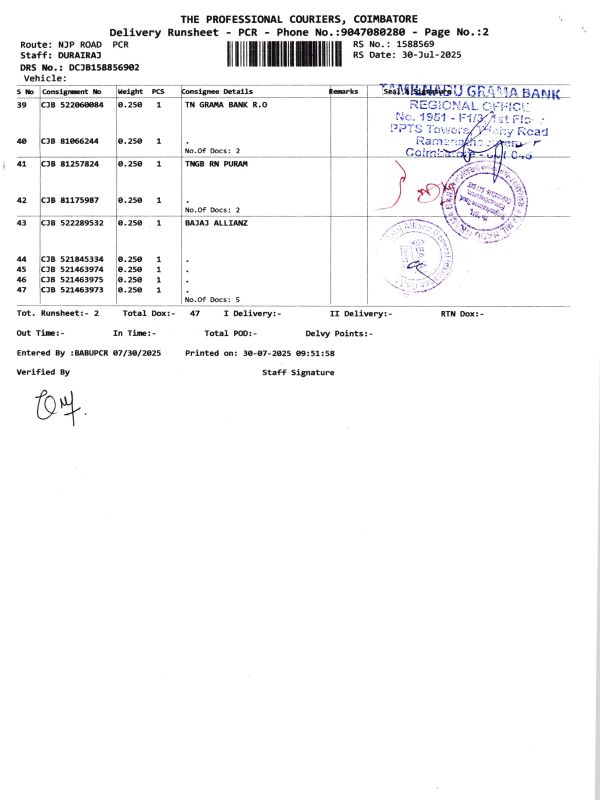 THE PROFESSIONAL COURIERS, COIMBATORE
Delivery Runsheet - PCR - Phone No.:9047080280 - Page No.:2
Route: NJP ROAD PCR
Staff: DURAIRAJ
DRS No.: DCJB158856902
Vehicle:
RS No.: 1588569
RS Date: 30-Jul-2025
S No Consignment No Weight PCS Consignee Details Remarks Seal & Signature
39 CJB 522060084 0.250 1 TN GRAMA BANK R.O
40 CJB 81066244 0.250 1 .
No.Of Docs: 2
TAMIL NADU GRAMA BANK
REGIONAL OFFICE
No. 1951 - F1/3, 1st Floor
PPTS Towers, Trichy Road
Coimbatore
41 CJB 81257824 0.250 1 TNGB RN PURAM
42 CJB 81175987 0.250 1 .
No.Of Docs: 2
43 CJB 522289532 0.250 1 BAJAJ ALLIANZ
44 CJB 521845334 0.250 1 .
45 CJB 521463974 0.250 1 .
46 CJB 521463975 0.250 1 .
47 CJB 521463973 0.250 1 .
No.Of Docs: 5
Tot. Runsheet:- 2 Total Dox:- 47 I Delivery:- II Delivery:- RTN Dox:-
Out Time:- In Time:- Total POD:- Delvy Points:-
Entered By :BABUPCR 07/30/2025 Printed on: 30-07-2025 09:51:58
Verified By Staff Signature